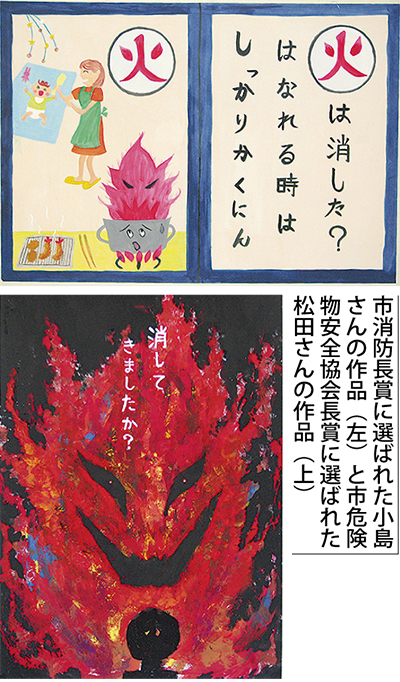 火
火は消した?
はなれる時は
しっかりかくにん
消して
きましたか?
市消防長賞に選ばれた小島
さんの作品（左）と市危険
物安全協会長賞に選ばれた
松田さんの作品（上）